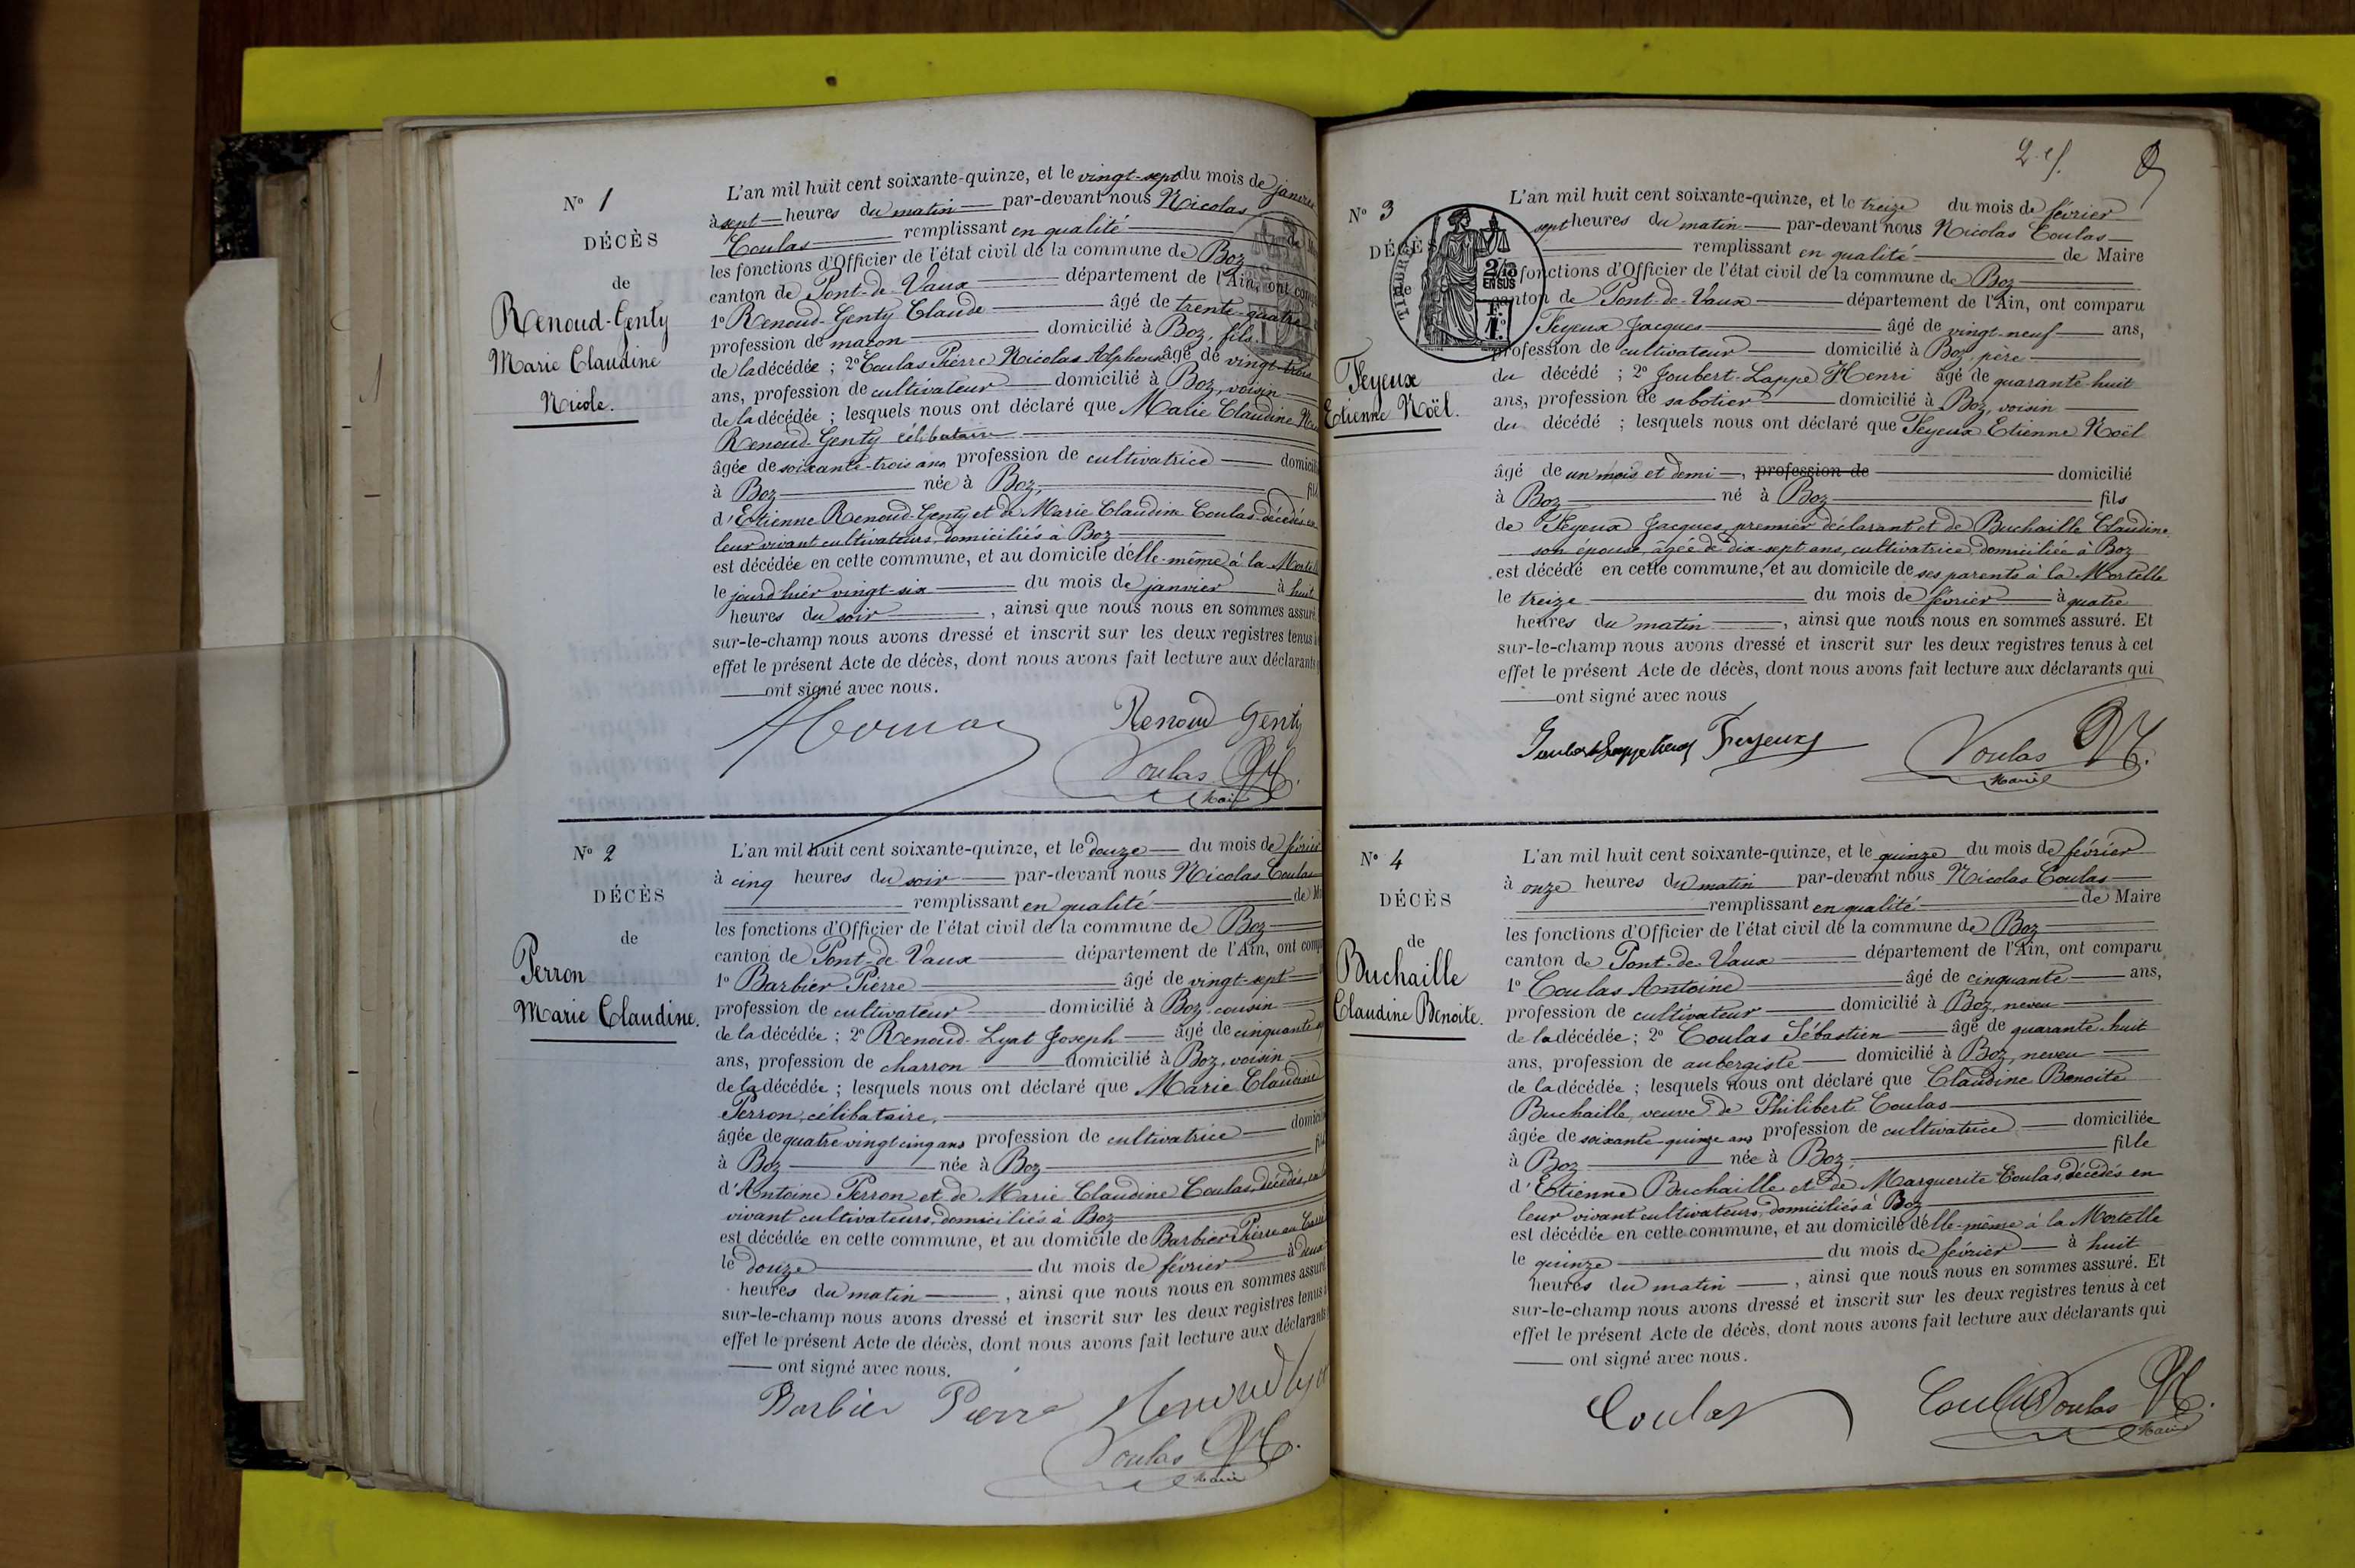 N° 1
DÉCÈS
de
Renoud-Genty
Marie Claudine
Nicole.
L'an mil huit cent soixante-quinze, et le vingt-sept du mois de janvier
à sept heures du matin par-devant nous Nicolas
Coulas remplissant en qualité
les fonctions d'Officier de l'état civil de la commune de Boz
canton de Pont-de-Vaux département de l'Ain, ont
1° Renoud-Genty Claude âgé de trente-quatre
profession de maçon domicilié à Boz, fils
de la décédée ; 2° Coulas Pierre Nicolas Alphonse âgé de vingt-trois
ans, profession de cultivateur domicilié à Boz, voisin
de la décédée ; lesquels nous ont déclaré que Marie Claudine
Renoud-Genty célibataire
âgée de soixante-trois ans profession de cultivatrice
à Boz née à Boz,
d'Etienne Renoud-Genty et de Marie Claudine Coulas décédés en
leur vivant cultivateurs, domiciliés à Boz
est décédée en cette commune, et au domicile d'elle-même à la
le jourd'hier vingt-six du mois de janvier à huit
heures du soir , ainsi que nous nous en sommes assuré.
sur-le-champ nous avons dressé et inscrit sur les deux registres tenus à
effet le présent Acte de décès, dont nous avons fait lecture aux déclarants
ont signé avec nous.
Renoud Genty
Coulas N
Maire
N° 2
DÉCÈS
de
Perron
Marie Claudine.
L'an mil huit cent soixante-quinze, et le douze du mois de février
à cinq heures du soir par-devant nous Nicolas Coulas
remplissant en qualité de
les fonctions d'Officier de l'état civil de la commune de Boz
canton de Pont-de-Vaux département de l'Ain, ont
1° Barbier Pierre âgé de vingt-sept
profession de cultivateur domicilié à Boz cousin
de la décédée ; 2° Renoud-Lyat Joseph âgé de cinquante
ans, profession de charron domicilié à Boz, voisin
de la décédée ; lesquels nous ont déclaré que Marie Claudine
Perron, célibataire,
âgée de quatre vingt cinq ans profession de cultivatrice
à Boz née à Boz
d'Antoine Perron et de Marie Claudine Coulas, décédés, en
vivant cultivateurs, domiciliés à Boz
est décédée en cette commune, et au domicile de Barbier Pierre au
le douze du mois de février à deux
heures du matin , ainsi que nous nous en sommes assuré
sur-le-champ nous avons dressé et inscrit sur les deux registres tenus
effet le présent Acte de décès, dont nous avons fait lecture aux déclarants
ont signé avec nous.
Barbier Pierre Renoud Lyat
Coulas N
Maire
2 ef.
N° 3
DÉCÈS
de
TIMBRE
2/10
EN SUS
1F.
Feyeux
Etienne Noël.
L'an mil huit cent soixante-quinze, et le treize du mois de février
sept heures du matin par-devant nous Nicolas Coulas
remplissant en qualité de Maire
fonctions d'Officier de l'état civil de la commune de Boz
canton de Pont-de-Vaux département de l'Ain, ont comparu
Feyeux Jacques âgé de vingt-neuf ans,
profession de cultivateur domicilié à Boz, père
du décédé ; 2° Joubert-Lappe Henri âgé de quarante-huit
ans, profession de sabotier domicilié à Boz, voisin
du décédé ; lesquels nous ont déclaré que Feyeux Etienne Noël
âgé de un mois et demi , profession de domicilié
à Boz né à Boz fils
de Feyeux Jacques, premier déclarant et de Buchaille Claudine
son épouse, âgée de dix-sept ans, cultivatrice, domiciliée à Boz
est décédé en cette commune, et au domicile de ses parents à la Mortelle
le treize du mois de février à quatre
heures du matin , ainsi que nous nous en sommes assuré. Et
sur-le-champ nous avons dressé et inscrit sur les deux registres tenus à cet
effet le présent Acte de décès, dont nous avons fait lecture aux déclarants qui
ont signé avec nous
Joubert Lappe henri Feyeux Coulas N
Maire
N° 4
DÉCÈS
de
Buchaille
Claudine Benoite.
L'an mil huit cent soixante-quinze, et le quinze du mois de février
à onze heures du matin par-devant nous Nicolas Coulas
remplissant en qualité de Maire
les fonctions d'Officier de l'état civil de la commune de Boz
canton de Pont-de-Vaux département de l'Ain, ont comparu
1° Coulas Antoine âgé de cinquante ans,
profession de cultivateur domicilié à Boz, neveu
de la décédée ; 2° Coulas Sébastien âgé de quarante-huit
ans, profession de aubergiste domicilié à Boz, neveu
de la décédée ; lesquels nous ont déclaré que Claudine Benoite
Buchaille, veuve de Philibert Coulas
âgée de soixante-quinze ans profession de cultivatrice domiciliée
à Boz née à Boz, fille
d'Etienne Buchaille et de Marguerite Coulas, décédés en
leur vivant cultivateurs, domiciliés à Boz
est décédée en cette commune, et au domicile d'elle-même à la Mortelle
le quinze du mois de février à huit
heures du matin , ainsi que nous nous en sommes assuré. Et
sur-le-champ nous avons dressé et inscrit sur les deux registres tenus à cet
effet le présent Acte de décès, dont nous avons fait lecture aux déclarants qui
ont signé avec nous.
Coulas Coulas Coulas N
Maire